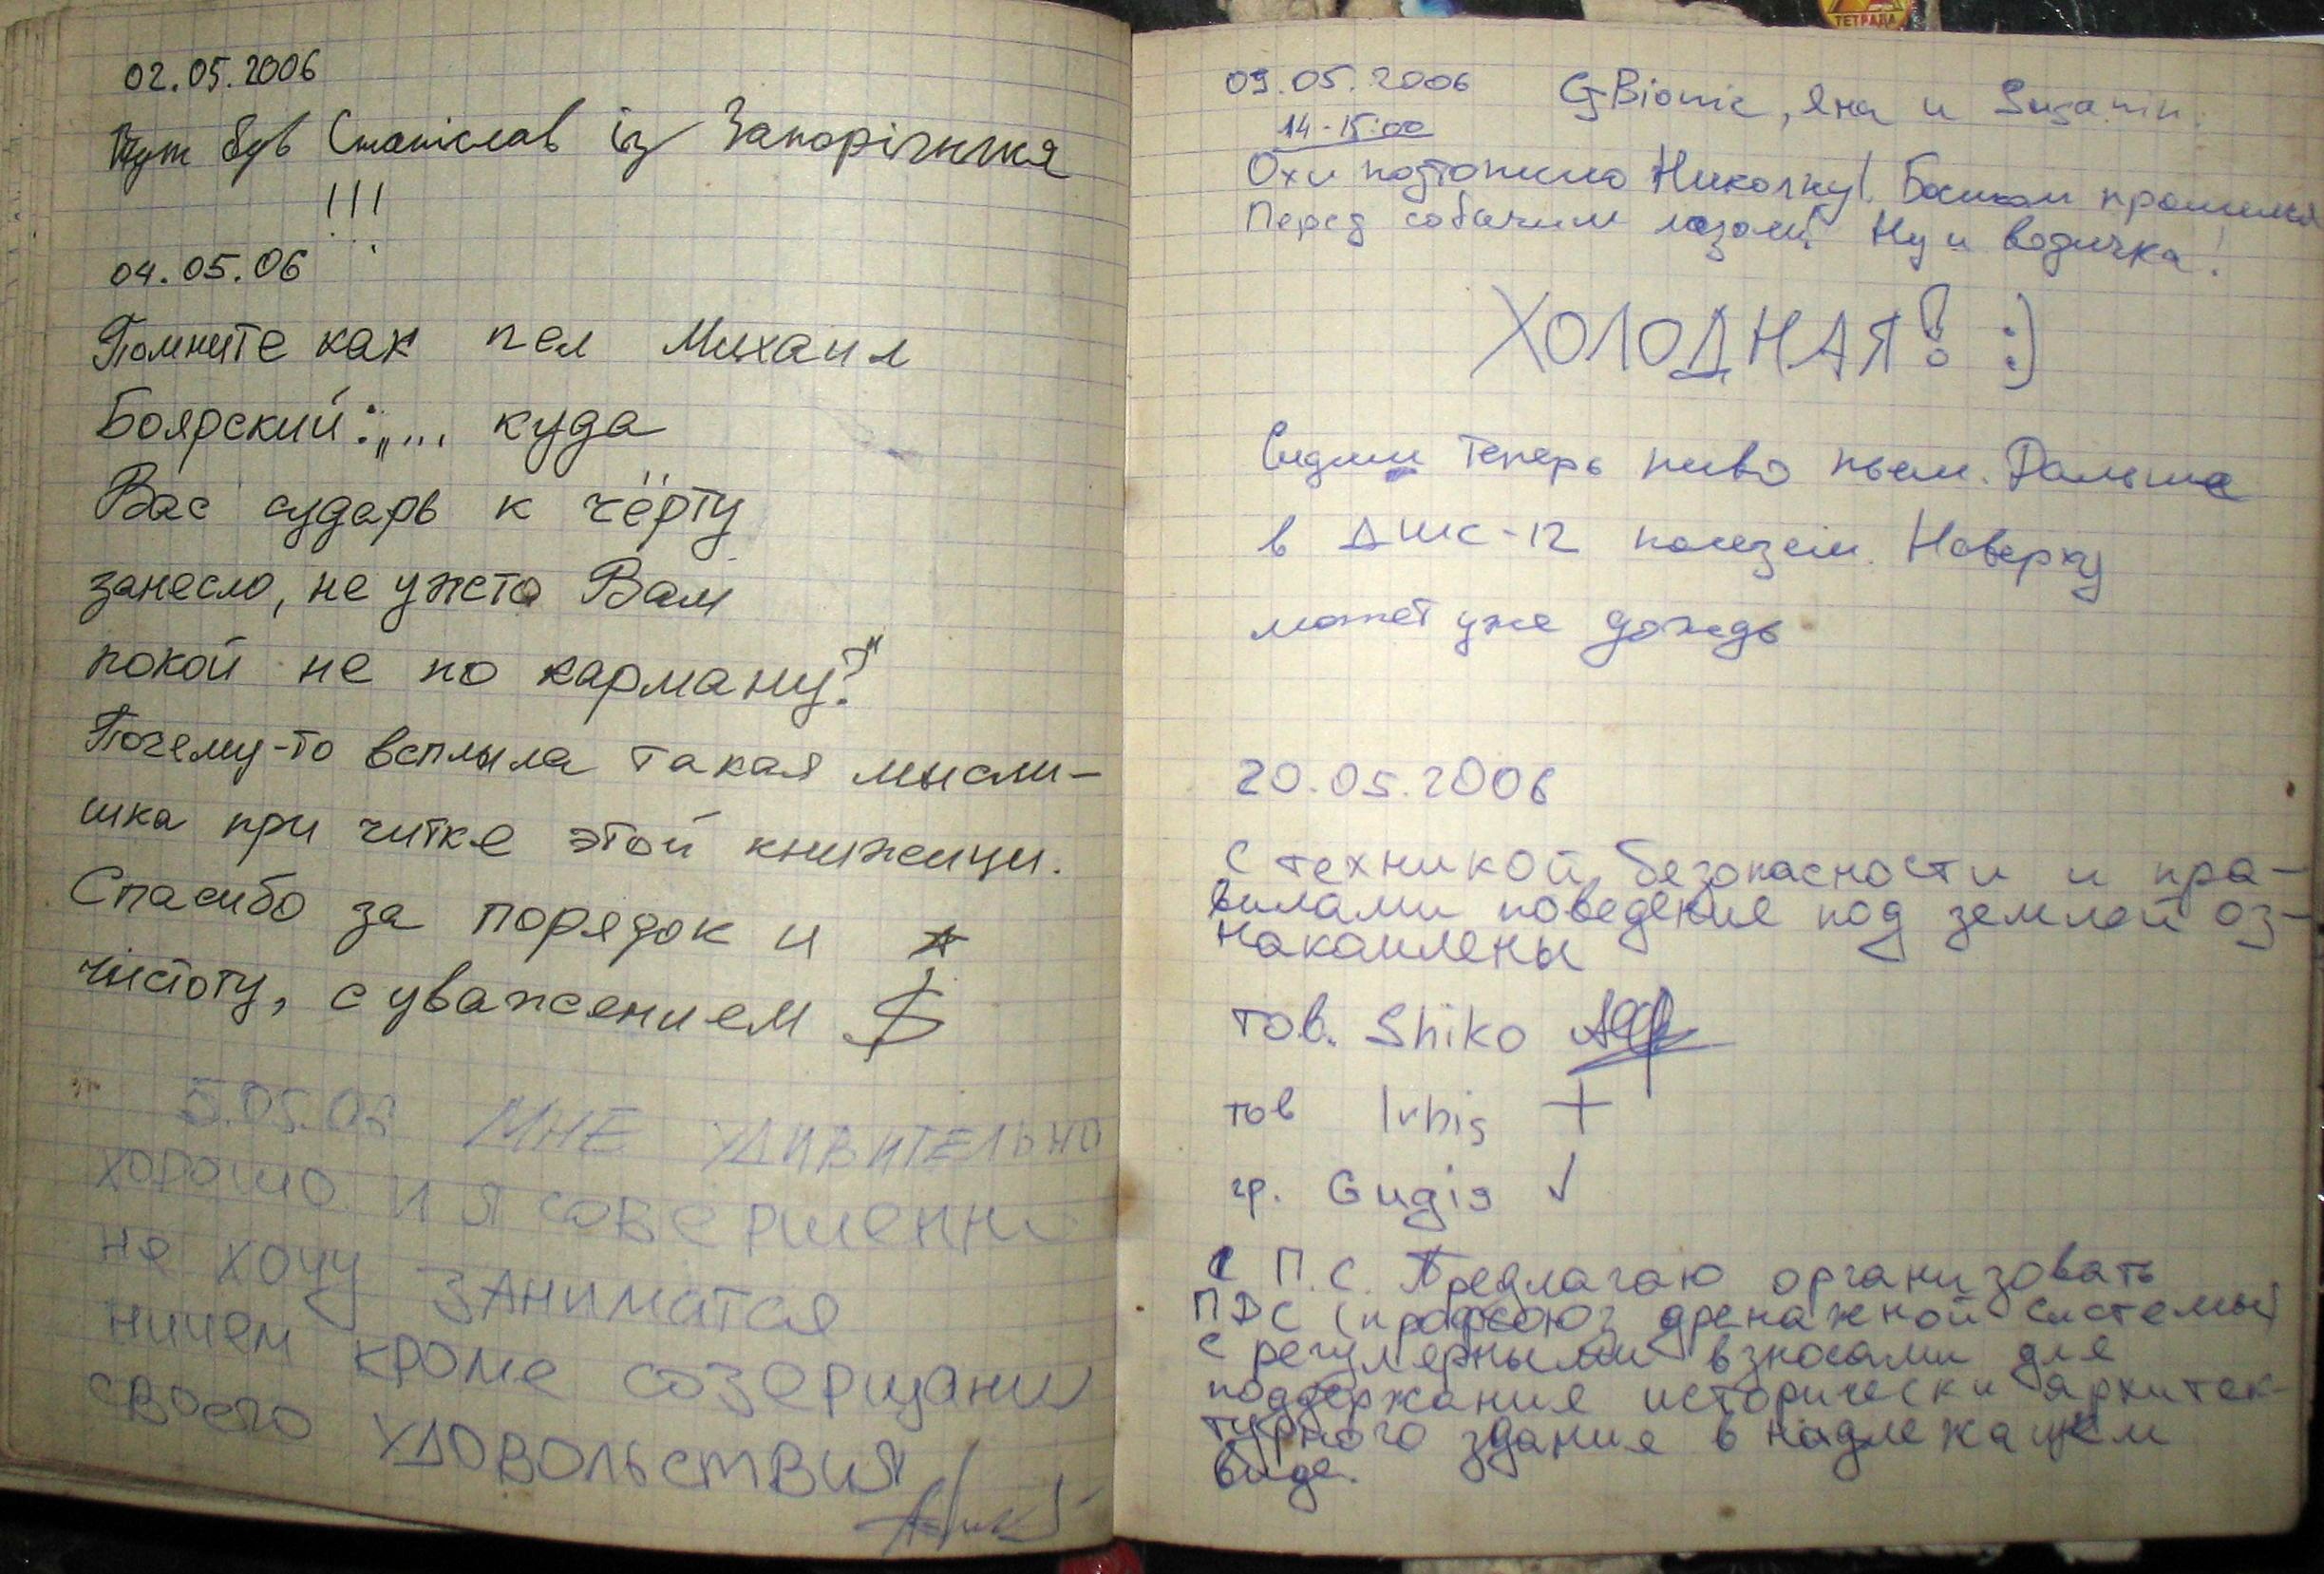 ТЕТРАДА
02.05.2006
Тут був Станіслав із Запоріжжя
!!!
04.05.06
Помните как пел Михаил
Боярский: „... куда
Вас сударь к чёрту
занесло, не ужсто Вам
покой не по карману?"
Почему-то всплыла такая мысли-
шка при читке этой книжици.
Спасибо за порядок и
чистоту, с уважением $
5.05.06 МНЕ УДИВИТЕЛЬНО
хорошо и я совершенно
не хочу ЗАНИМАТСЯ
ничем кроме созерцани
своего УДОВОЛЬСТВИЯ
09.05.2006 GBionic, Яна и Susanin.
14-15:00
Охи подтопило Николку! Босиком прошлись
Перед собачим лазом. Ну и водичка!
ХОЛОДНАЯ! :)
Сидим теперь пиво пьем. Дальше
в ДШС-12 полезем. Наверху
может уже дождь
20.05.2006
С техникой безопасности и пра-
вилами поведение под землей оз-
накомлены
тов. Shiko
тов Irbis +
гр. Gugis √
П.С. Предлагаю организовать
ПДС (профсоюз дренажной системы)
с регулярными взносами для
поддержание исторически архитек-
турного здания в надлежащем
виде.